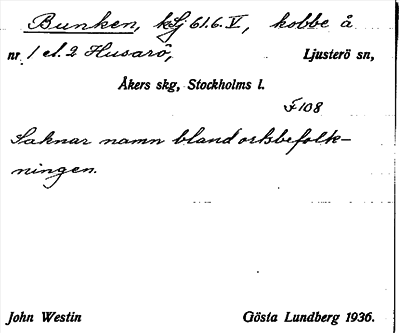 Bunken, kLj 61.6. V, kobbe å
nr 1 el. 2 Husarö, Ljusterö sn,
Åkers skg, Stockholms l.
F108
Saknar namn bland ortsbefolk-
ningen.
John Westin Gösta Lundberg 1936.